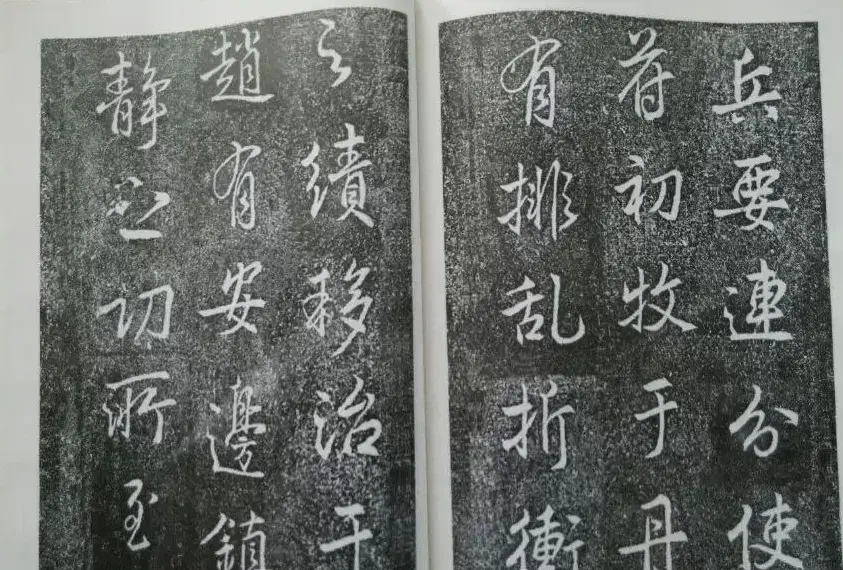 兵要連分使
苻初牧于丹
有排乱折衝
之績移治于
趙有安邊鎮
静之功所至